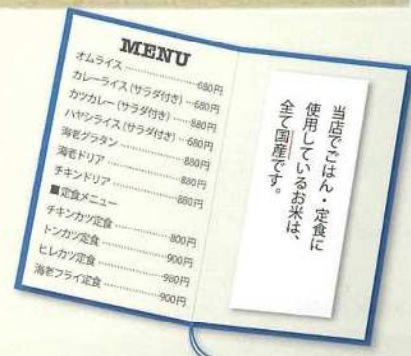 MENU
オムライス……………680円
カレーライス(サラダ付き)…680円
カツカレー(サラダ付き)……880円
ハヤシライス(サラダ付き)…680円
海老グラタン……………880円
海老ドリア………………880円
チキンドリア……………880円
■定食メニュー
チキンカツ定食…………800円
トンカツ定食……………900円
ヒレカツ定食……………980円
海老フライ定食…………900円
当店でごはん・定食に
使用しているお米は、
全て国産です。